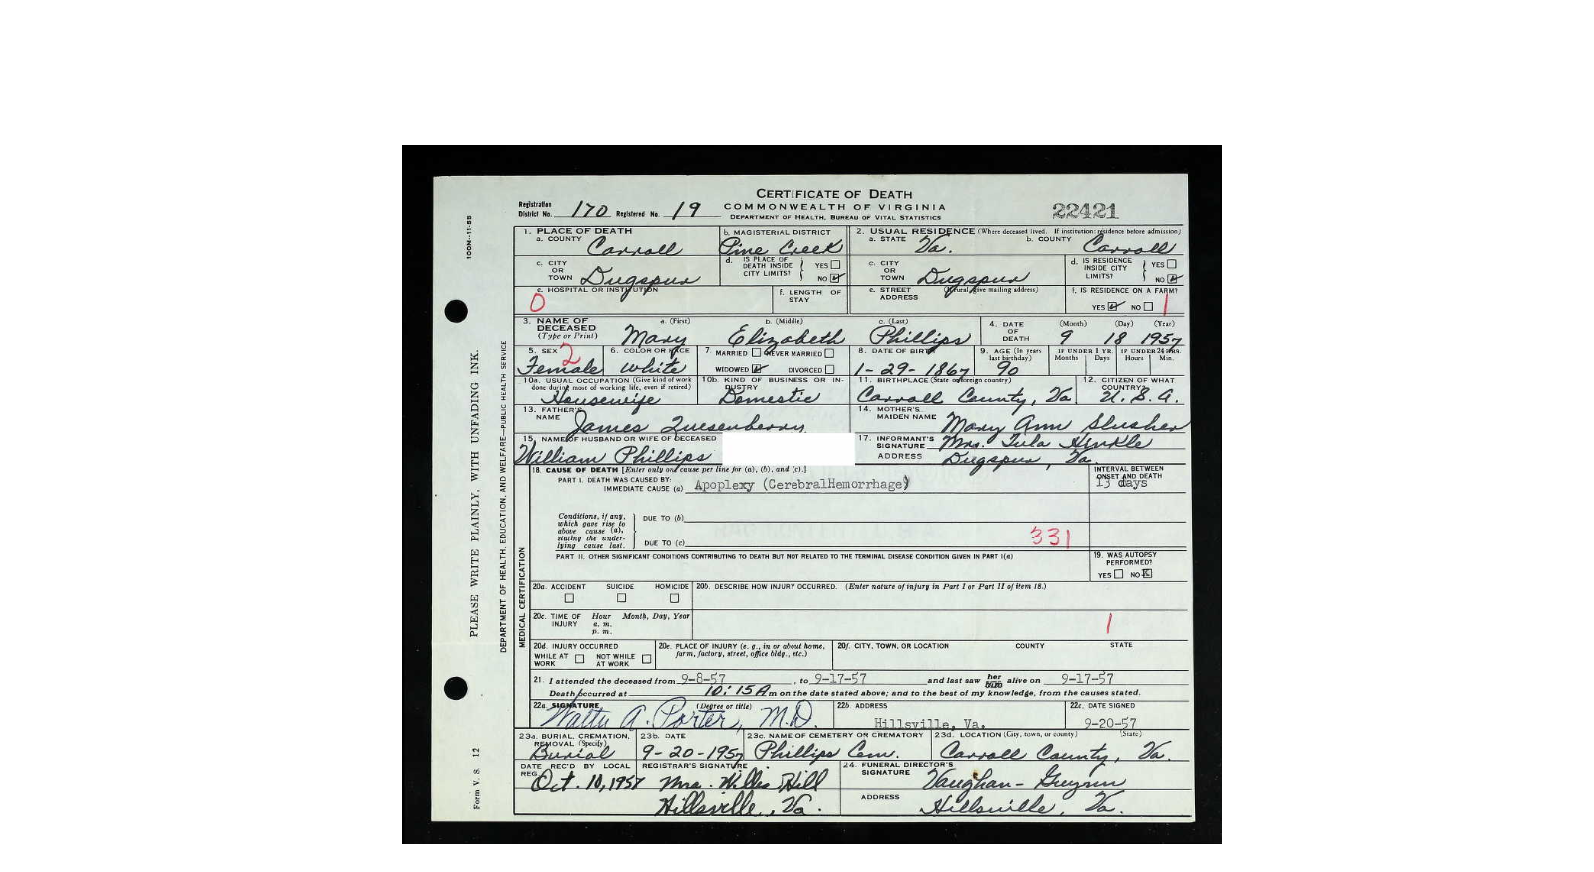 CERTIFICATE OF DEATH
COMMONWEALTH OF VIRGINIA
DEPARTMENT OF HEALTH, BUREAU OF VITAL STATISTICS
Registration District No. 170 Registered No. 19
22421
1. PLACE OF DEATH
a. COUNTY Carroll
b. MAGISTERIAL DISTRICT Pine Creek
2. USUAL RESIDENCE (Where deceased lived. If institution: residence before admission)
a. STATE Va. b. COUNTY Carroll
c. CITY OR TOWN Dugspur
d. IS PLACE OF DEATH INSIDE CITY LIMITS? YES NO
c. CITY OR TOWN Dugspur
d. IS RESIDENCE INSIDE CITY LIMITS? YES NO
e. HOSPITAL OR INSTITUTION
0
f. LENGTH OF STAY
e. STREET ADDRESS (If rural, give mailing address)
f. IS RESIDENCE ON A FARM? YES NO
1
3. NAME OF DECEASED (Type or Print)
a. (First) Mary b. (Middle) Elizabeth c. (Last) Phillips
4. DATE OF DEATH (Month) 9 (Day) 18 (Year) 1957
5. SEX Female 2
6. COLOR OR RACE White
7. MARRIED NEVER MARRIED
WIDOWED DIVORCED
8. DATE OF BIRTH 1-29-1867
9. AGE (In years last birthday) 90
IF UNDER 1 YR. Months Days
IF UNDER 24 HRS. Hours Min.
10a. USUAL OCCUPATION (Give kind of work done during most of working life, even if retired) Housewife
10b. KIND OF BUSINESS OR INDUSTRY Domestic
11. BIRTHPLACE (State or foreign country) Carroll County, Va
12. CITIZEN OF WHAT COUNTRY? U.S.A.
13. FATHER'S NAME James Quesenberry
14. MOTHER'S MAIDEN NAME Mary Ann Slusher
15. NAME OF HUSBAND OR WIFE OF DECEASED
William Phillips
17. INFORMANT'S SIGNATURE Mrs. Tula Hinkle
ADDRESS Dugspur, Va.
18. CAUSE OF DEATH [Enter only one cause per line for (a), (b), and (c).]
PART I. DEATH WAS CAUSED BY:
IMMEDIATE CAUSE (a) Apoplexy (CerebralHemorrhage)
INTERVAL BETWEEN ONSET AND DEATH
13 days
Conditions, if any, which gave rise to above cause (a), stating the underlying cause last.
DUE TO (b)
DUE TO (c)
331
PART II. OTHER SIGNIFICANT CONDITIONS CONTRIBUTING TO DEATH BUT NOT RELATED TO THE TERMINAL DISEASE CONDITION GIVEN IN PART I(a)
19. WAS AUTOPSY PERFORMED?
YES NO X
20a. ACCIDENT SUICIDE HOMICIDE
20b. DESCRIBE HOW INJURY OCCURRED. (Enter nature of injury in Part I or Part II of item 18.)
20c. TIME OF INJURY Hour a. m. p. m. Month, Day, Year
1
20d. INJURY OCCURRED
WHILE AT WORK NOT WHILE AT WORK
20e. PLACE OF INJURY (e. g., in or about home, farm, factory, street, office bldg., etc.)
20f. CITY, TOWN, OR LOCATION COUNTY STATE
21. I attended the deceased from 9-8-57, to 9-17-57 and last saw her him alive on 9-17-57
Death occurred at 10:15 A m on the date stated above; and to the best of my knowledge, from the causes stated.
22a. SIGNATURE (Degree or title)
Walter A. Porter, M.D.
22b. ADDRESS
Hillsville, Va.
22c. DATE SIGNED
9-20-57
23a. BURIAL, CREMATION, REMOVAL (Specify) Burial
23b. DATE 9-20-1957
23c. NAME OF CEMETERY OR CREMATORY Phillips Cem.
23d. LOCATION (City, town, or county) (State) Carroll County, Va.
DATE REC'D BY LOCAL REG. Oct. 10, 1957
REGISTRAR'S SIGNATURE Mrs. Willis Hill
Hillsville, Va.
24. FUNERAL DIRECTOR'S SIGNATURE Vaughan-Guynn
ADDRESS Hillsville, Va.
100M-11-55
PLEASE WRITE PLAINLY, WITH UNFADING INK.
Form V. S. 12
DEPARTMENT OF HEALTH, EDUCATION, AND WELFARE—PUBLIC HEALTH SERVICE
MEDICAL CERTIFICATION